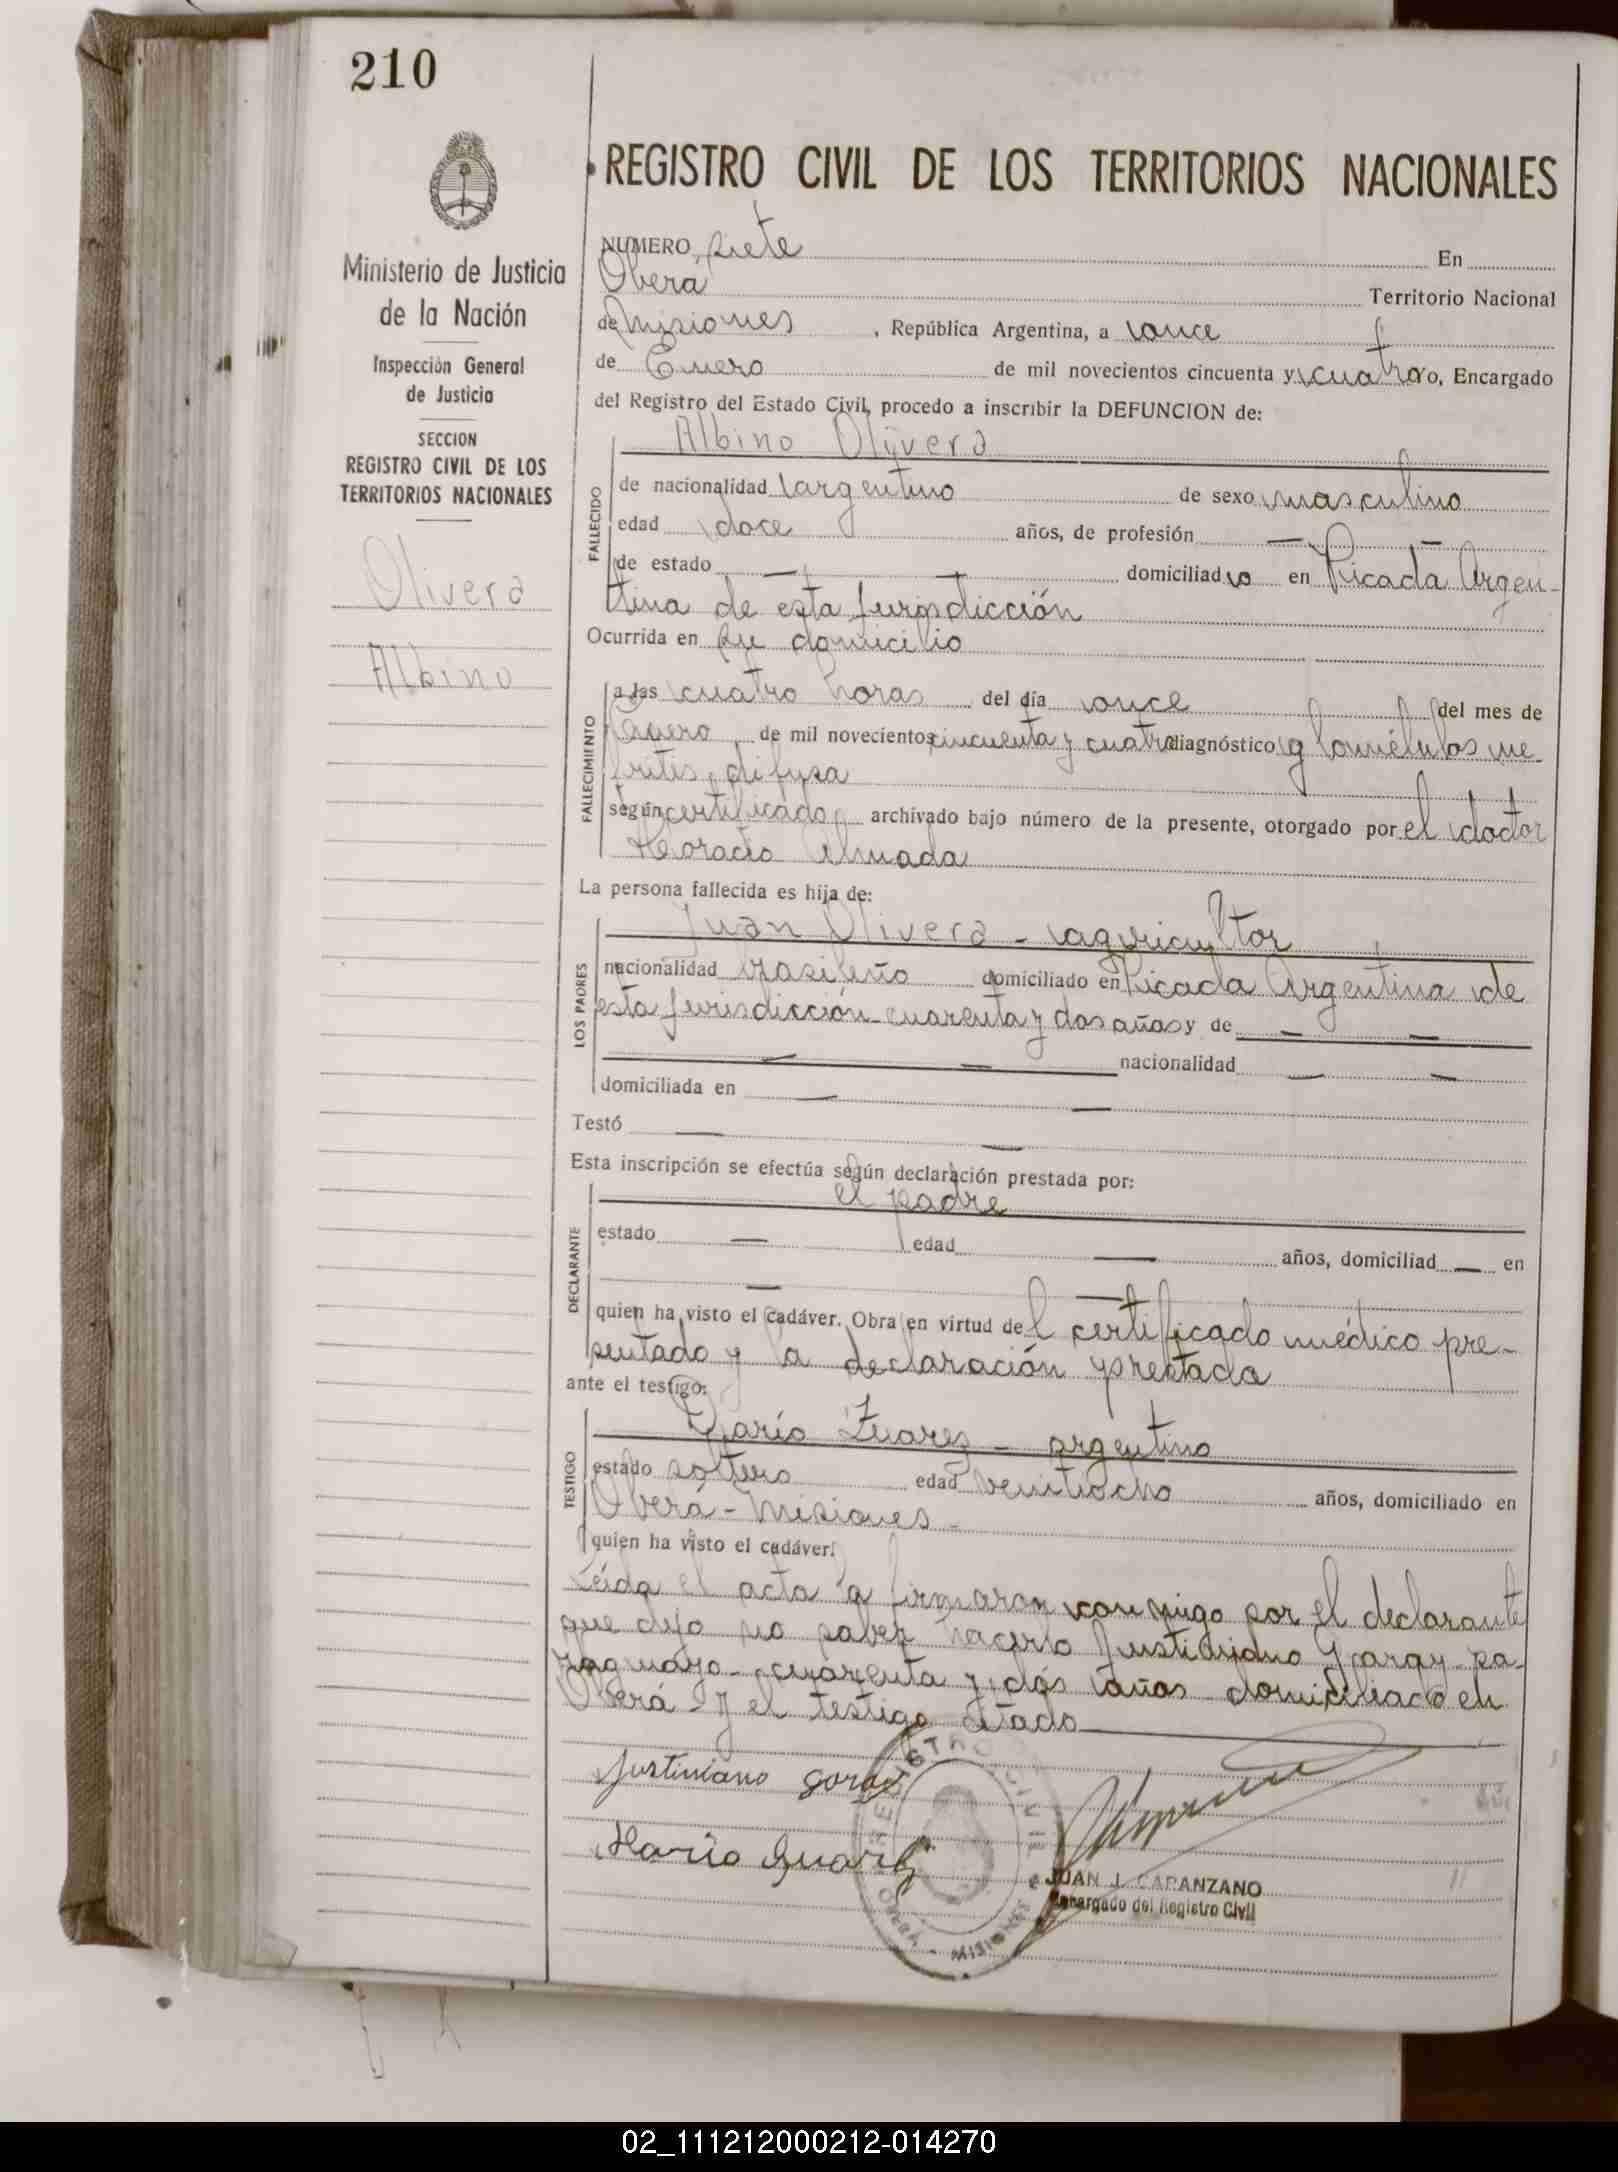 210
REGISTRO CIVIL DE LOS TERRITORIOS NACIONALES
Ministerio de Justicia
de la Nación
Inspección General
de Justicia
SECCION
REGISTRO CIVIL DE LOS
TERRITORIOS NACIONALES
Olivera
Albino
NUMERO siete En
Oberá Territorio Nacional
de Misiones , República Argentina, a once
de Enero de mil novecientos cincuenta y cuatro yo, Encargado
del Registro del Estado Civil, procedo a inscribir la DEFUNCION de:
Albino Olivera
FALLECIDO
de nacionalidad argentino de sexo masculino
edad doce años, de profesión — —
de estado — — domiciliado en Picada Argen-
tina de esta jurisdicción
Ocurrida en su domicilio
FALLECIMIENTO
a las cuatro horas del día once del mes de
Enero de mil novecientos cincuenta y cuatro diagnóstico glomérulos ne
fritis difusa
según certificado archivado bajo número de la presente, otorgado por el doctor
Horacio Almada
La persona fallecida es hija de:
LOS PADRES
Juan Olivera - agricultor
nacionalidad brasileño domiciliado en Picada Argentina de
esta jurisdicción cuarenta y dos años y de — —
— — nacionalidad — —
domiciliada en — —
Testó — —
Esta inscripción se efectúa según declaración prestada por:
el padre
DECLARANTE
estado — edad — años, domiciliad — en
— —
quien ha visto el cadáver. Obra en virtud del certificado médico pre-
sentado y la declaración prestada
ante el testigo:
TESTIGO
Mario Zuarez - argentino
estado soltero edad veintiocho años, domiciliado en
Oberá - Misiones -
quien ha visto el cadáver.
Leída el acta la firmaron conmigo por el declarante
que dijo no saber hacerlo Justiniano Garay - pa-
raguayo - cuarenta y dos años domiciliado en
Oberá - y el testigo citado
Justiniano Garay
Mario Zuarez
REGISTRO CIVIL
OBERÁ - MISIONES
JUAN J. CAPANZANO
Encargado del Registro Civil
02_111212000212-014270